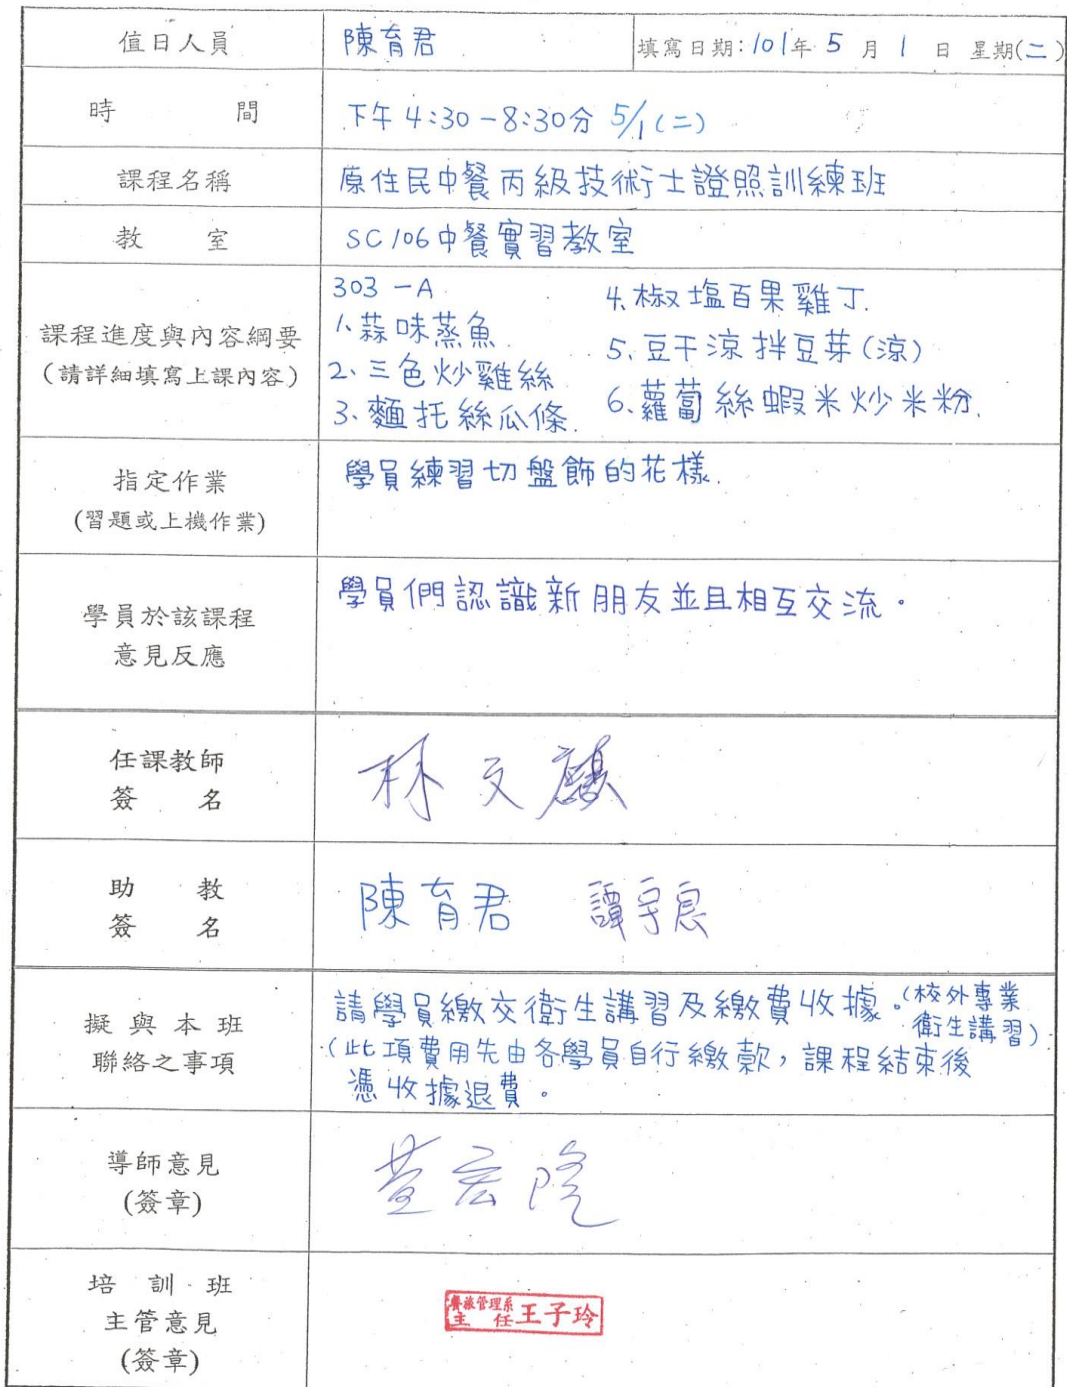 值日人員 陳育君 填寫日期:101年 5 月 1 日 星期(二)
時 間 下午 4:30-8:30分 5/1(二)
課程名稱 原住民中餐丙級技術士證照訓練班
教 室 SC106中餐實習教室
課程進度與內容綱要
(請詳細填寫上課內容)
303-A
1、蒜味蒸魚
2、三色炒雞絲
3、麵托絲瓜條.
4、椒塩百果雞丁.
5、豆干涼拌豆芽(涼)
6、蘿蔔絲蝦米炒米粉.
指定作業
(習題或上機作業)
學員練習切盤飾的花樣.
學員於該課程
意見反應
學員們認識新朋友並且相互交流。
任課教師
簽 名
林文
助 教
簽 名
陳育君 譚守良
擬與本班
聯絡之事項
請學員繳交衛生講習及繳費收據。(校外專業
衛生講習)
(此項費用先由各學員自行繳款,課程結束後
憑收據退費。
導師意見
(簽章)
宏隆
培 訓 班
主管意見
(簽章)
餐旅管理系
主 任 王子玲